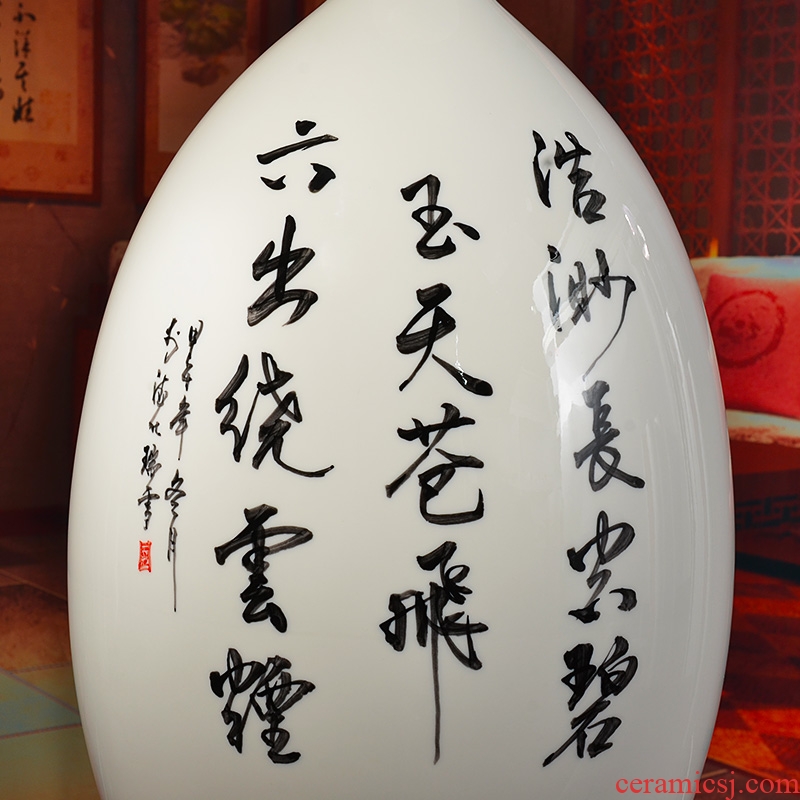 浩渺長空碧
玉天苍飛
六出绕雲煙
甲午年冬月
ceramicsj.com